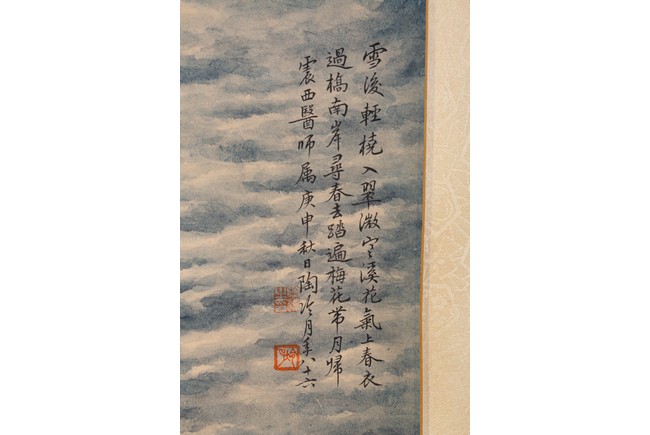 雪後輕橈入翠微穴溪花氣上春衣
過橋南岸尋春去踏遍梅花帶月歸
震西醫師属庚申秋日陶冷月年八十六